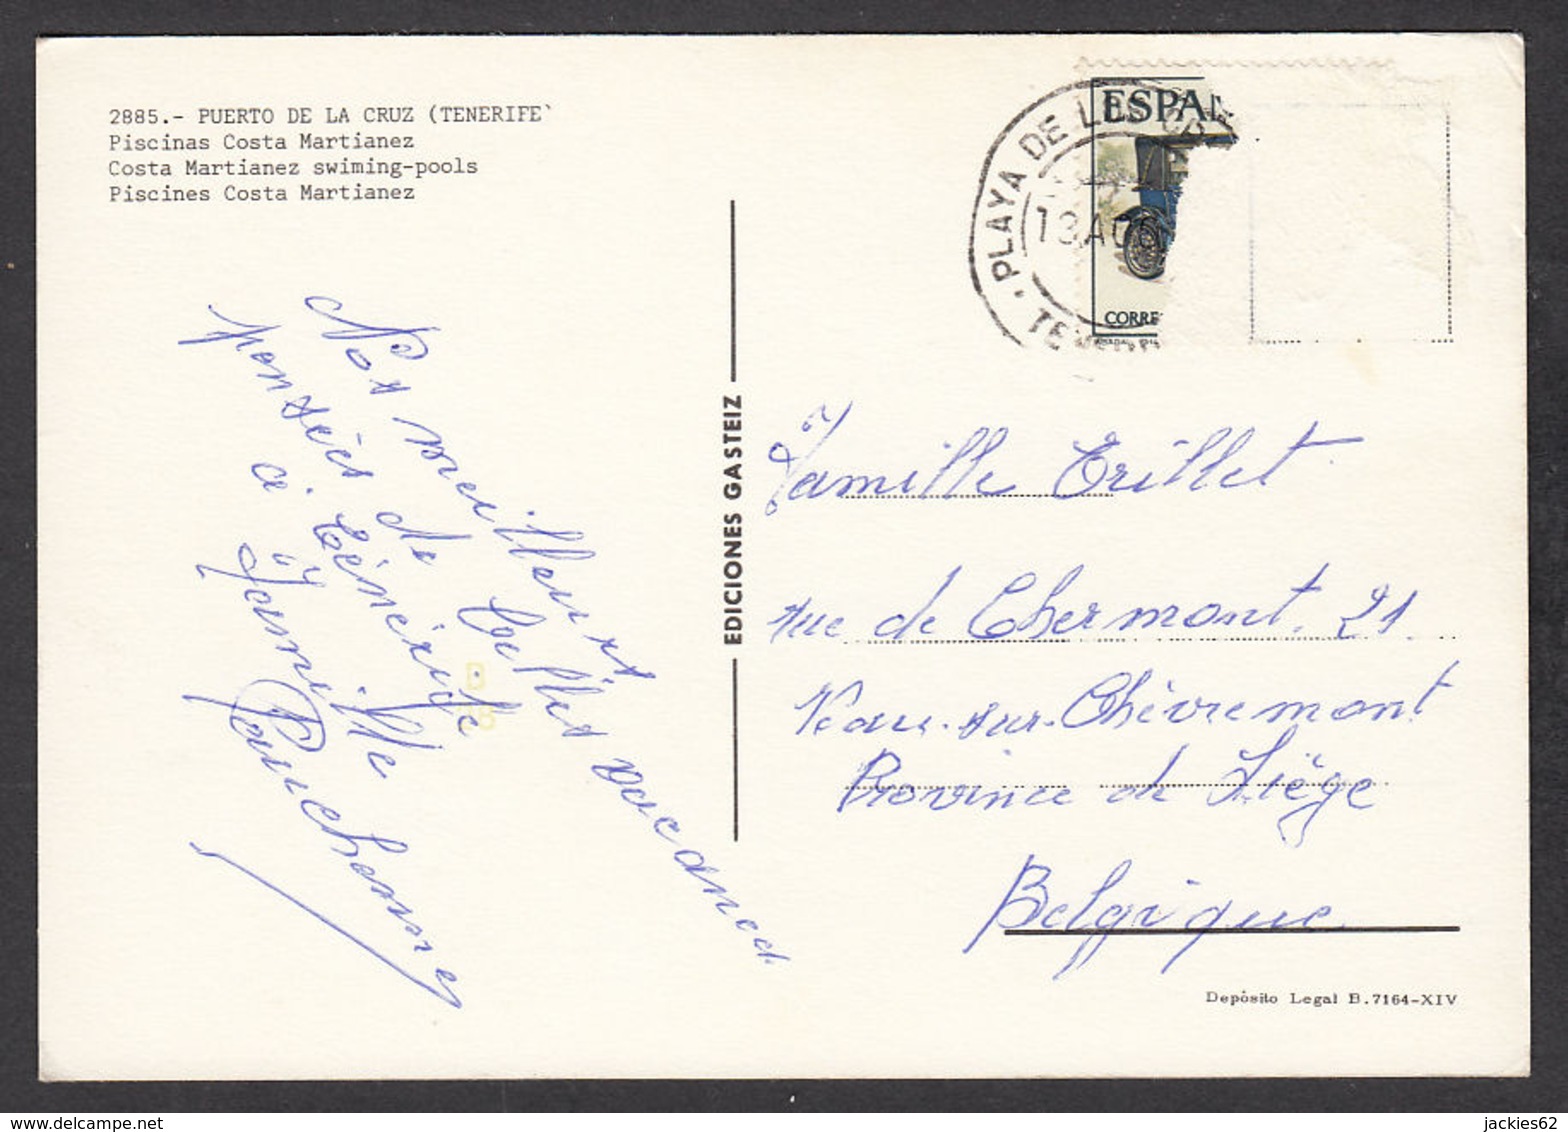 2885.- PUERTO DE LA CRUZ (TENERIFE)
Piscinas Costa Martianez
Costa Martianez swiming-pools
Piscines Costa Martianez
Nos meilleures
pensées de belles vacances
à Ténérife
Famille
EDICIONES GASTEIZ
PLAYA DE L
13 AGO
TENER
ESPA
CORRE
Famille Trillet
rue de Chermont. 21.
Vaux-sur-Chèvremont
Province de Liège
Belgique
Depósito Legal B.7164-XIV
jackies62